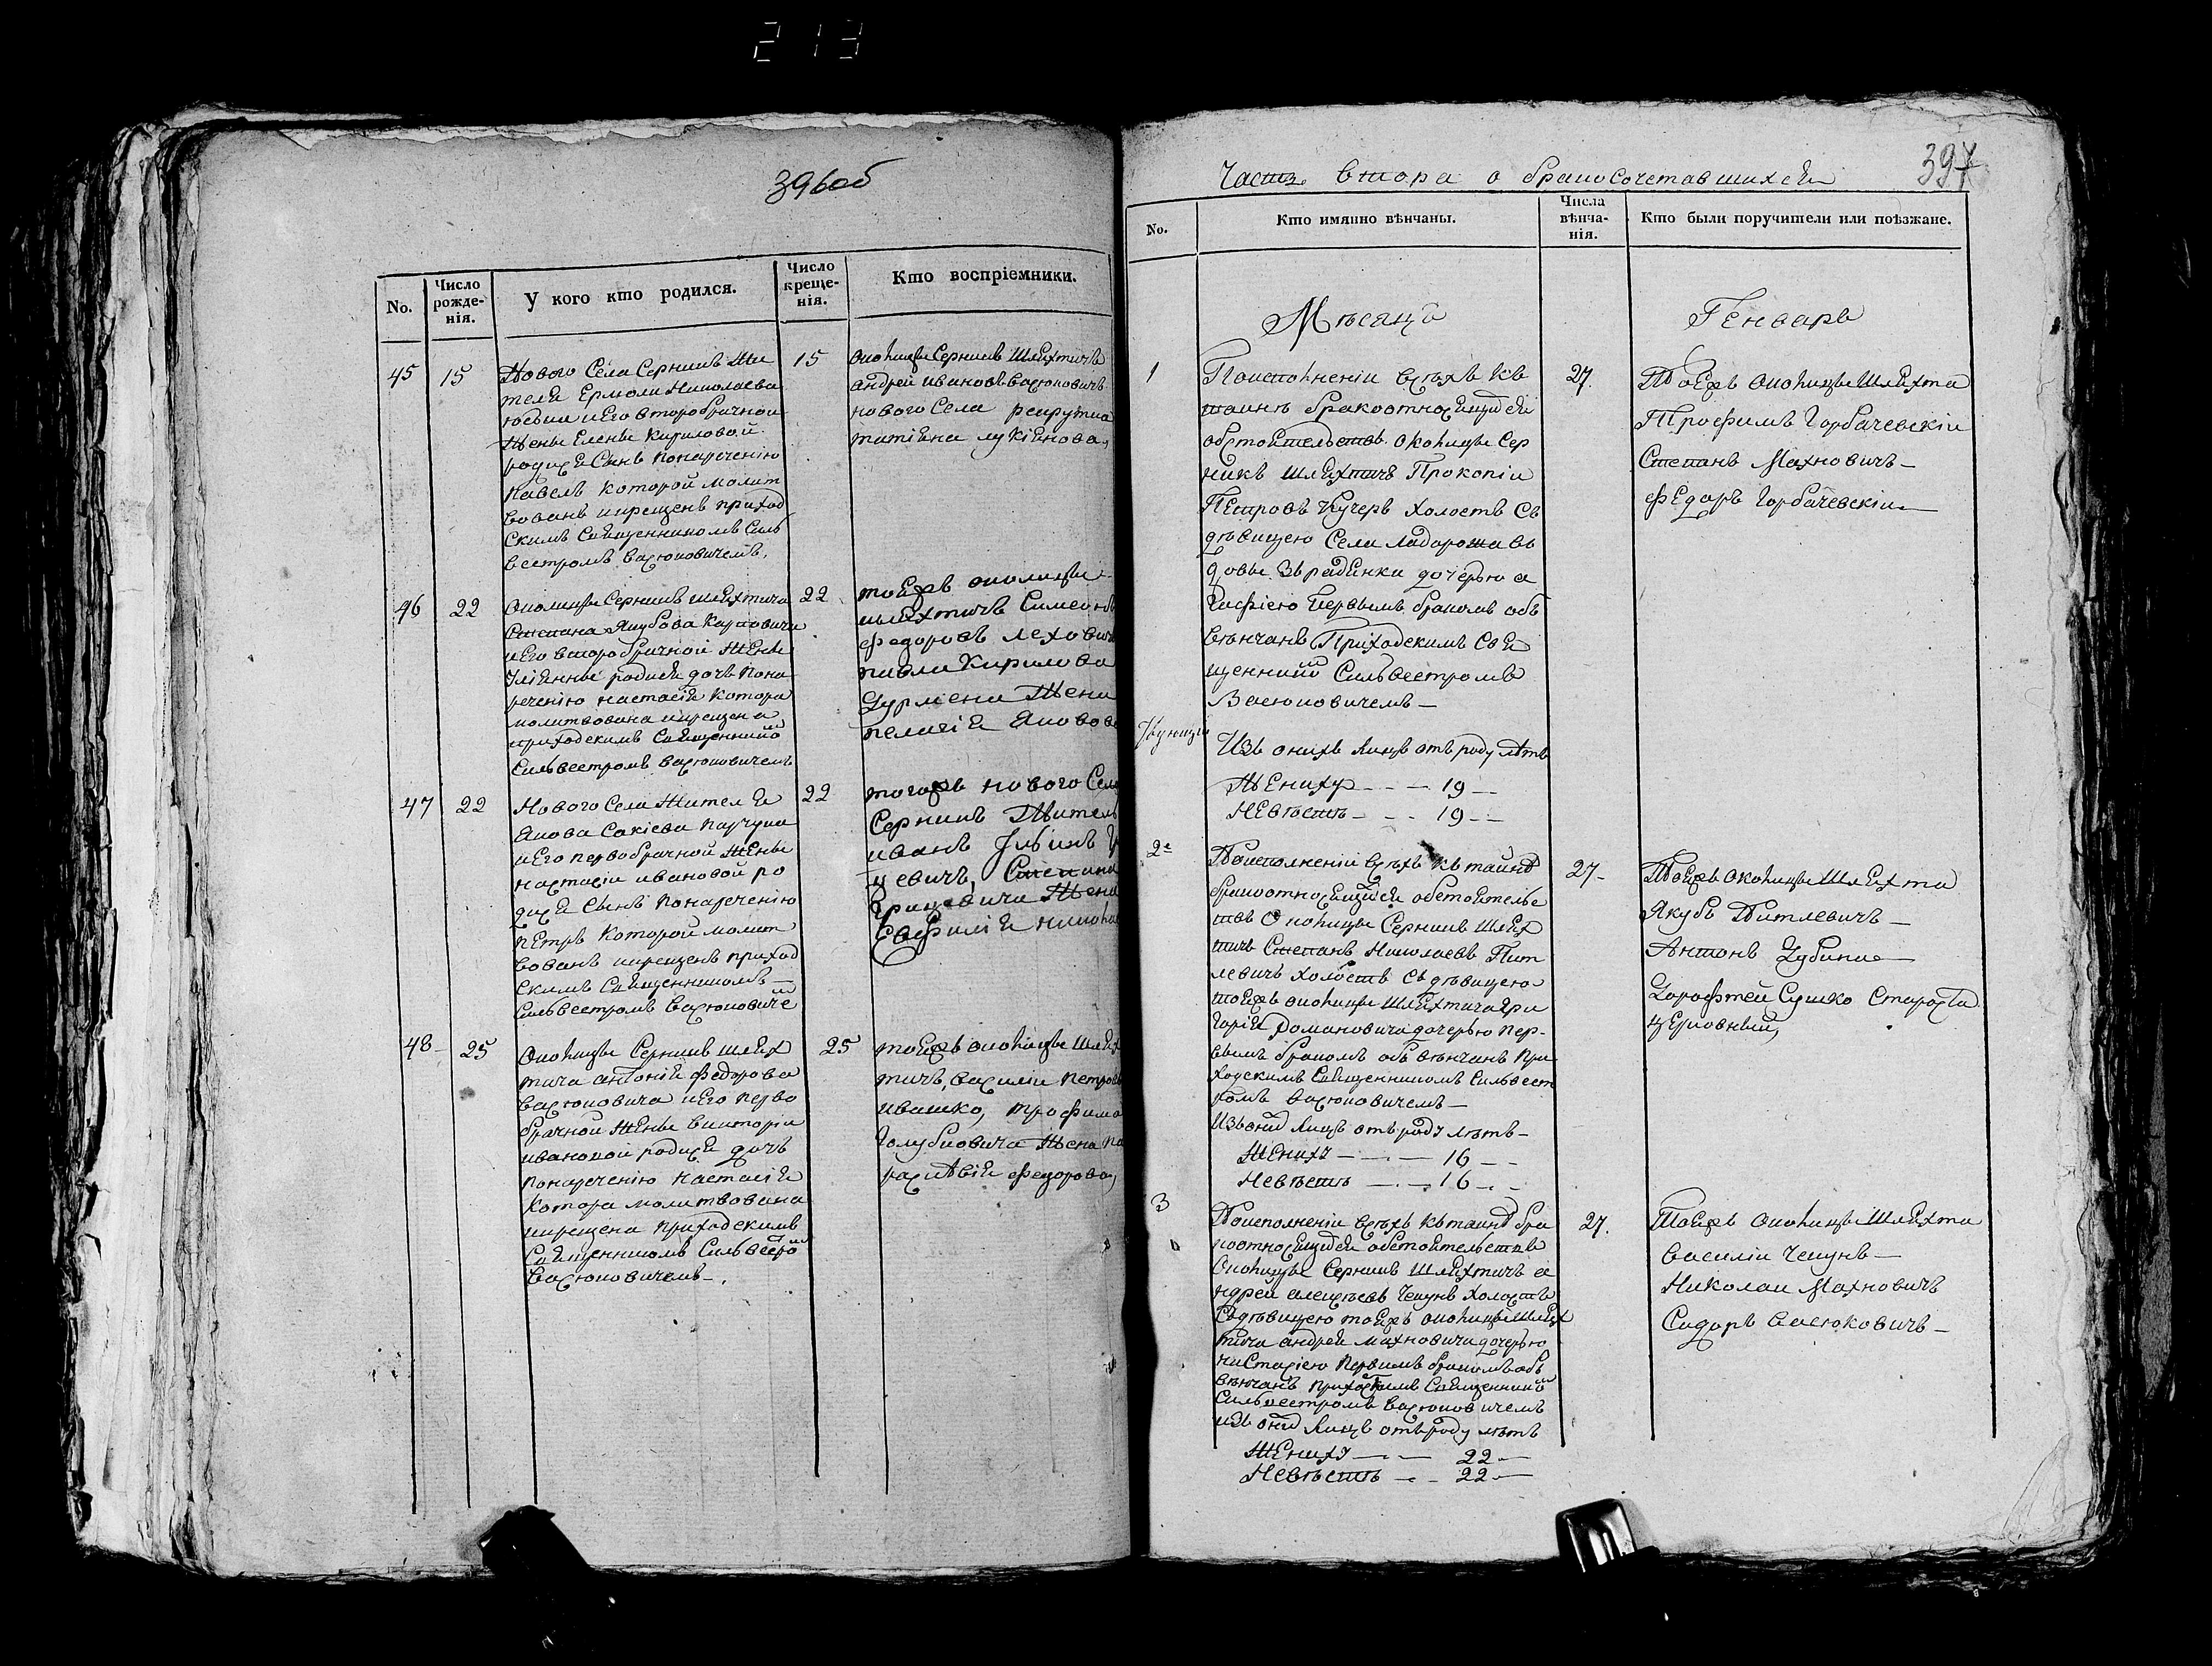 213
396 об
No.
Число рожде-
нія.
У кого кто родился.
Число
креще-
нія.
Кто воспріемники.
45
15
Нового Села Серникъ Жи
теля Ермоли Николаева
и Его второбрачной
Жены Елены Кириловой
родися Сынъ понареченію
Павелъ которой молит
вованъ икрещенъ приход
скимъ Священникомъ Силь
вестромъ Васюковичемъ,
15
Околицы Серникъ Шляхтичъ
андрей ивановъ Васюковичъ
нового Села
татіяна лукіянова,
46
22
Околицы Серникъ шляхтича
Степана Якубова Карповича
и Его второбрачной Жены
Уліянны родися дочъ пона
реченію настасія котора
молитвована икрещена
приходскимъ Священнико
Сильвестромъ Васюковичемъ
22
тоежъ околицы
шляхтичъ Симеонъ
федоровъ лехович
павла Кирилова
Жена
пелагія
47
22
Нового Села Жителя
Якова Сакіева
и Его первобрачной Жены
настасіи ивановой ро
дися Сынъ понареченію
петръ которой молит
вованъ икрещенъ приход
скимъ Священникомъ
Сильвестромъ Васюковиче
22
тогожъ нового Села
Серникъ Житель
иванъ
цевичъ, Степана
Грицевича Жена
48
25
Околицы Серникъ шлях
тича антонія федорова
Васюковича и Его перво
брачной Жены викторіи
ивановой родися дочъ
понареченію настасія
котора молитвована
икрещена приходскимъ
Священникомъ Сильвестро
Васюковичемъ.
25
тоежъ околицы шлях
тичъ, Василіи петровъ
ивашко, трофима
Голубовича Жена па
федорова,
397
Часть втора о бракосочетавшихся
No.
Кто имянно вѣнчаны.
Числа
вѣнча-
нія.
Кто были поручители или поѣзжане.
Мѣсяцъ
Генваръ
1
Поисполненіи всѣхъ къ
таинѣ бракоотносящихся
обстоятельствъ околицы Сер
никъ шляхтичъ Прокопіи
Петровъ Кучеръ холостъ съ
дѣвицею Села Ладорожа в
довы Зврадинки дочерью а
гафіею Первымъ бракомъ объ
вѣнчанъ Приходскимъ Свя
щеннико Сильвестромъ
Васюковичемъ
Изъ онихъ лицъ отъ роду лѣтъ
Жениху 19
Невѣстѣ 19
27.
Тоежъ околицы Шляхта
Трофимъ Горбачевскіи
Степанъ Махновичъ
Федоръ Горбачевскіи
2
Поисполненіи всѣхъ къ таинѣ
бракоотносящихся обстоятельс
твъ Околицы Серникъ Шлях
тичъ Степанъ Николаевъ Пит
левичъ холостъ съ дѣвицею
тоежъ околицы шляхтича гри
горія Романовича дочерью пер-
вымъ бракомъ объвѣнчанъ при
ходскимъ Священникомъ Сильвест
ромъ Васюковичемъ
Изъ онихъ лицъ отъ роду лѣтъ
Жениху 16
Невѣстѣ 16
27
Тоежъ околицы Шляхта
Якубъ Питлевичъ
Антонъ
Дорофтей Сушко Староста
церковный,
3
Поисполненіи всѣхъ къ таинѣ бра
коотносящихся обстоятельствъ
Околицы Серникъ Шляхтичъ а
ндрей алексѣевъ Чепунъ холостъ
Съдѣвицею тоежъ околицы шлях
тича андрея махновича дочерью
настасіею первимъ бракомъ объ
вѣнчанъ приходскимъ Священнико
Сильвестромъ Васюковичемъ
изъ онихъ лицъ отъ роду лѣтъ
Жениху 22
Невѣстѣ 22
27.
Тоежъ околицы Шляхта
Василіи Чепунъ
Николаи Махновичъ
Сидоръ Васюковичъ